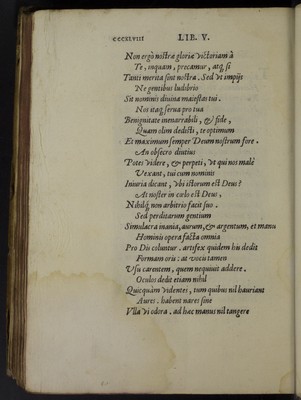 ccccxlviii LIB. V.
Non ergò nostræ gloriæ victoriam à
Te, inquam, precamur, atq; si
Tanti merita sint nostra. Sed vt impijs
Ne gentibus ludibrio
Sit nominis diuina maiestas tui.
Nos itaq; serua pro tua
Benignitate inenarrabili, & fide,
Quam olim dedisti, te optimum
Et maximum semper Deum nostrum fore.
An obsecro diutius
Potes videre, & perpeti, vt qui nos malè
Vexant, tui cum nominis
Iniuria dicant, vbi istorum est Deus?
At noster in cœlo est Deus,
Nihilq; non arbitrio facit suo.
Sed perditarum gentium
Simulacra inania, aurum, & argentum, et manu
Hominis opera facta omnia
Pro Dis coluntur. artifex quidem his dedit
Formam oris: at vocis tamen
Vsu carentem, quem nequiuit addere.
Oculos dedit etiam nihil
Quicquàm videntes, tum quibus nil hauriant
Aures. habent nares sine
Vlla vi odora. ad hæc manus nil tangere